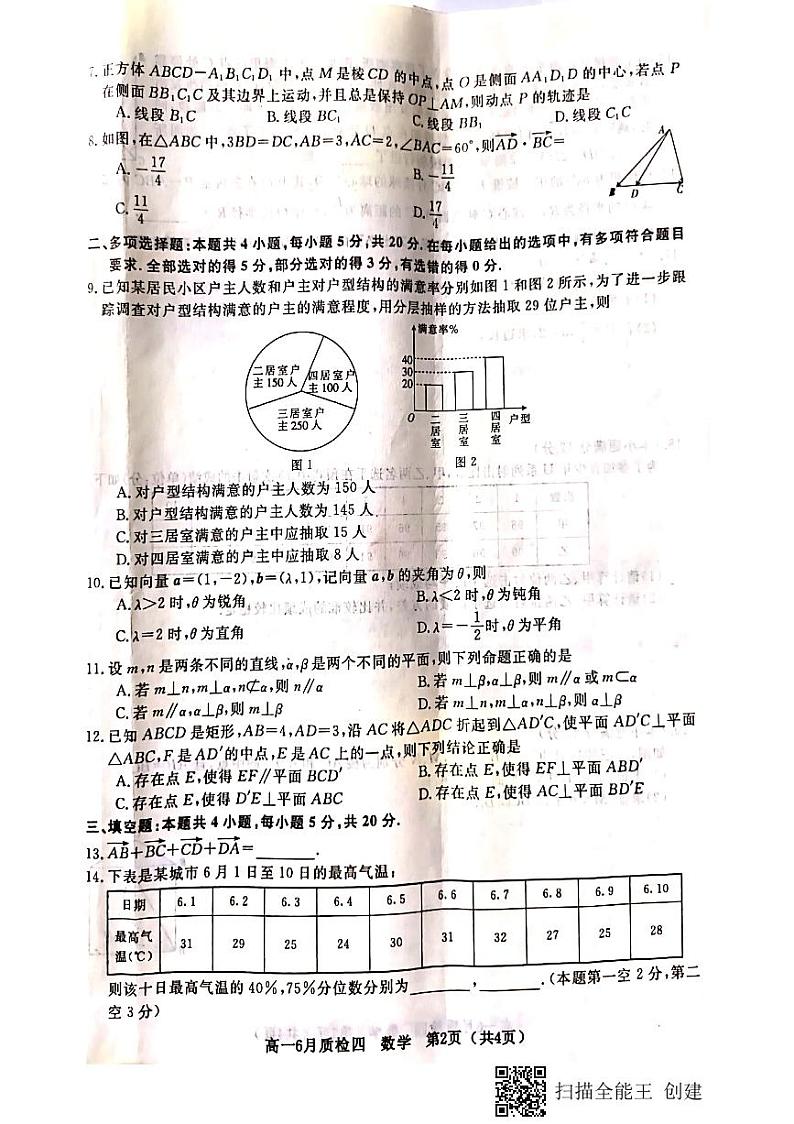 7. 正方体 ABCD-A₁B₁C₁D₁ 中,点 M 是棱CD 的中点,点 O 是侧面 AA₁D₁D 的中心,若点 P
在侧面 BB₁C₁C 及其边界上运动,并且总是保持OP⊥AM,则动点 P 的轨迹是
A. 线段 B₁C B. 线段 BC₁ C. 线段 BB₁ D. 线段 C₁C
8. 如图,在△ABC 中,3BD=DC,AB=3,AC=2,∠BAC=60°,则\overrightarrow{AD}·\overrightarrow{BC}=
A. -17/4 B. -11/4
C. 11/4 D. 17/4
A
B D C
二、多项选择题:本题共 4 小题,每小题 5 分,共 20 分.在每小题给出的选项中,有多项符合题目
要求.全部选对的得 5 分,部分选对的得 3 分,有选错的得 0 分.
9. 已知某居民小区户主人数和户主对户型结构的满意率分别如图 1 和图 2 所示,为了进一步跟
踪调查对户型结构满意的户主的满意程度,用分层抽样的方法抽取 29 位户主,则
二居室户
主 150 人
四居室户
主 100 人
三居室户
主 250 人
图 1
满意率%
40
30
20
O 二居室 三居室 四居室 户型
图 2
A. 对户型结构满意的户主人数为 150 人
B. 对户型结构满意的户主人数为 145 人
C. 对三居室满意的户主中应抽取 15 人
D. 对四居室满意的户主中应抽取 8 人
10. 已知向量 a=(1,-2),b=(λ,1),记向量 a,b 的夹角为 θ,则
A. λ>2 时,θ 为锐角 B. λ<2 时,θ 为钝角
C. λ=2 时,θ 为直角 D. λ=-1/2时,θ 为平角
11. 设 m,n 是两条不同的直线,α,β 是两个不同的平面,则下列命题正确的是
A. 若 m⊥n,m⊥α,n⊄α,则 n∥α B. 若 m⊥β,α⊥β,则 m∥α 或 m⊂α
C. 若 m∥α,α⊥β,则 m⊥β D. 若 m⊥n,m⊥α,n⊥β,则 α⊥β
12. 已知 ABCD 是矩形,AB=4,AD=3,沿 AC 将△ADC 折起到△AD′C,使平面 AD′C⊥平面
△ABC,F 是 AD′的中点,E 是 AC 上的一点,则下列结论正确是
A. 存在点 E,使得 EF∥平面 BCD′ B. 存在点 E,使得 EF⊥平面 ABD′
C. 存在点 E,使得 D′E⊥平面 ABC D. 存在点 E,使得 AC⊥平面 BD′E
三、填空题:本题共 4 小题,每小题 5 分,共 20 分.
13. \overrightarrow{AB}+\overrightarrow{BC}+\overrightarrow{CD}+\overrightarrow{DA}=______.
14. 下表是某城市 6 月 1 日至 10 日的最高气温:
日期 6.1 6.2 6.3 6.4 6.5 6.6 6.7 6.8 6.9 6.10
最高气温(℃) 31 29 25 24 30 31 32 27 25 28
则该十日最高气温的 40%,75%分位数分别为______,______.(本题第一空 2 分,第二
空 3 分)
高一6月质检四 数学 第2页(共4页)
扫描全能王 创建